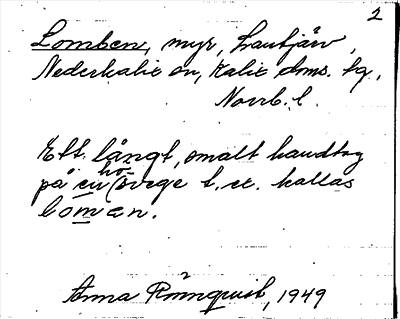 2
Lomben, myr, Lantjärv,
Nederkalix sn, Kalix dms. tg.,
Norrb. l.
Ett långt, smalt handtag
på en (hö-)svege t. ex. kallas
loman.
Anna Rönnquist, 1949